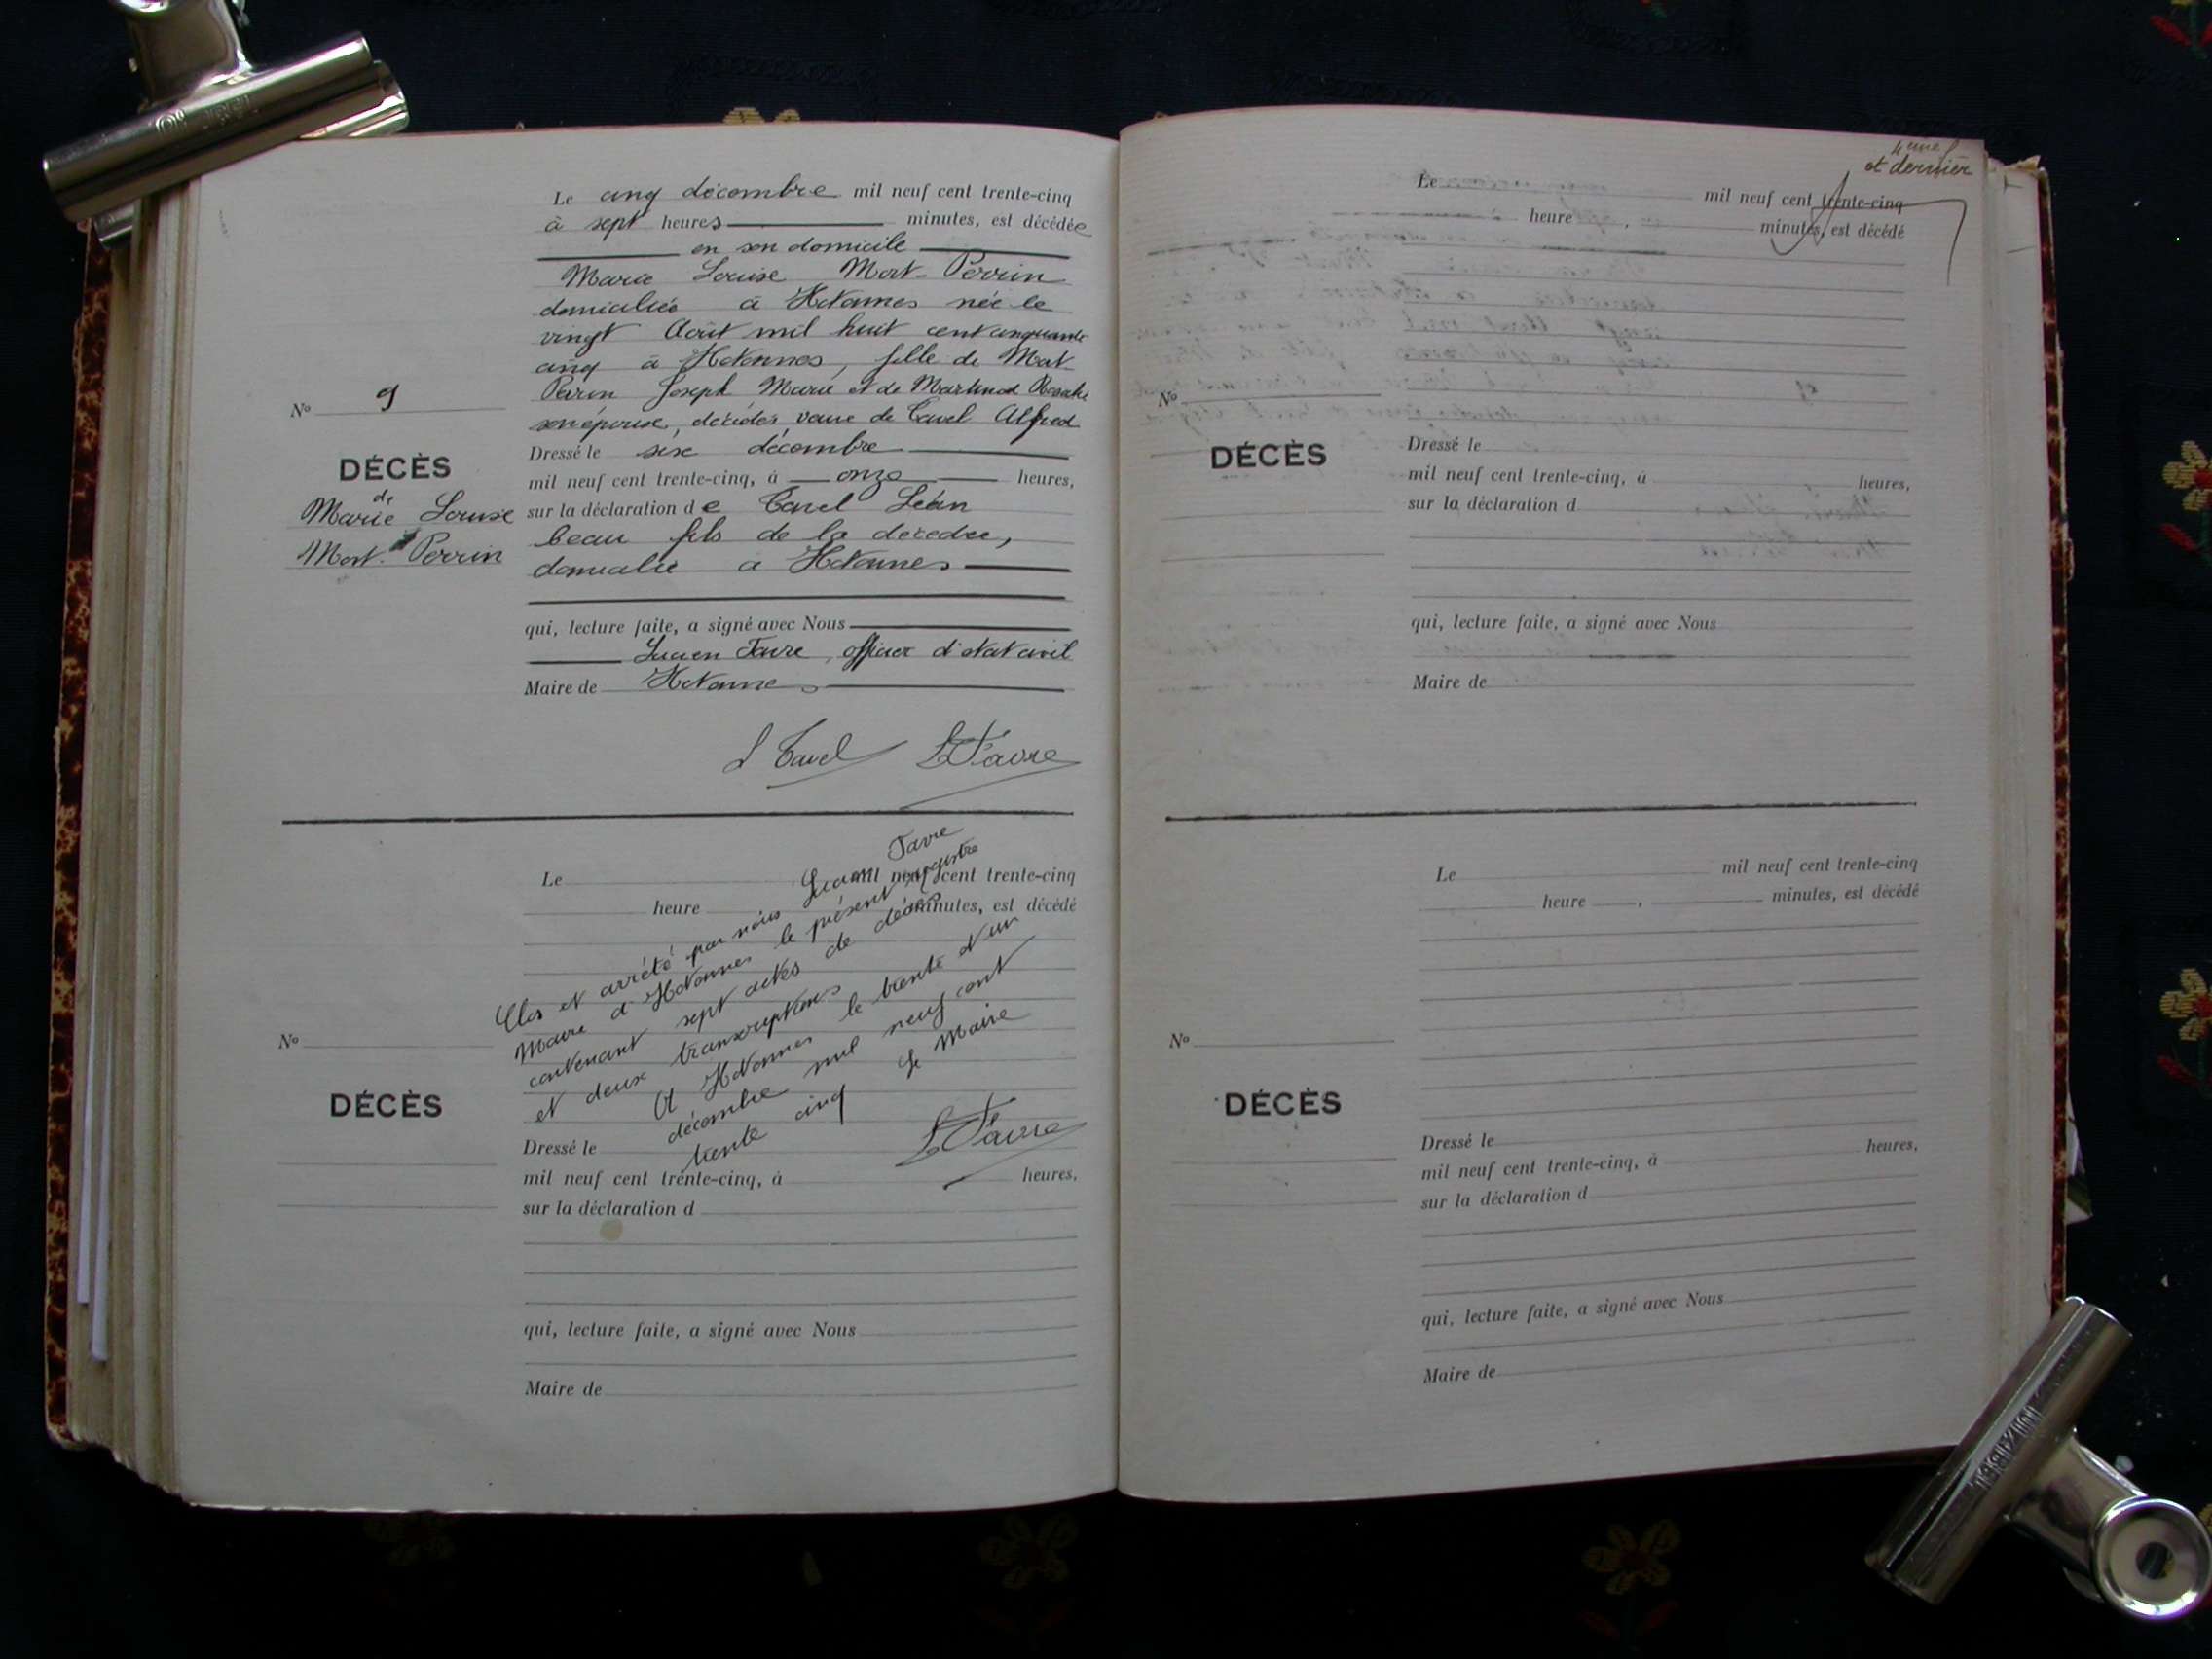 Le cinq décembre mil neuf cent trente-cinq
à sept heures minutes, est décédée
en son domicile
Marie Louise Mort-Perrin
domiciliée à Hotonnes née le
vingt Août mil huit cent cinquante
cinq à Hotonnes, fille de Mort
Perrin Joseph Marie et de Martinod
son épouse, décédés, veuve de Carrel Alfred
No 9
DÉCÈS
de
Marie Louise
Mort-Perrin
Dressé le six décembre
mil neuf cent trente-cinq, à onze heures,
sur la déclaration de Carrel Léon
beau fils de la décédée,
domicilié à Hotonnes
qui, lecture faite, a signé avec Nous
Lucien Favre, officier d'état civil
Maire de Hotonnes
L Carrel LFavre
Le mil neuf cent trente-cinq
heure minutes, est décédé
Clos et arrêté par nous Lucien Favre
Maire d'Hotonnes le présent registre
contenant sept actes de décès
et deux transcriptions
A Hotonnes le trente et un
décembre mil neuf cent
trente cinq Le Maire
LFavre
No
DÉCÈS
Dressé le
mil neuf cent trente-cinq, à heures,
sur la déclaration d
qui, lecture faite, a signé avec Nous
Maire de
4ème
et dernier
Le mil neuf cent trente-cinq
heure , minutes, est décédé
No
DÉCÈS
Dressé le
mil neuf cent trente-cinq, à heures,
sur la déclaration d
qui, lecture faite, a signé avec Nous
Maire de
Le mil neuf cent trente-cinq
heure , minutes, est décédé
No
DÉCÈS
Dressé le
mil neuf cent trente-cinq, à heures,
sur la déclaration d
qui, lecture faite, a signé avec Nous
Maire de